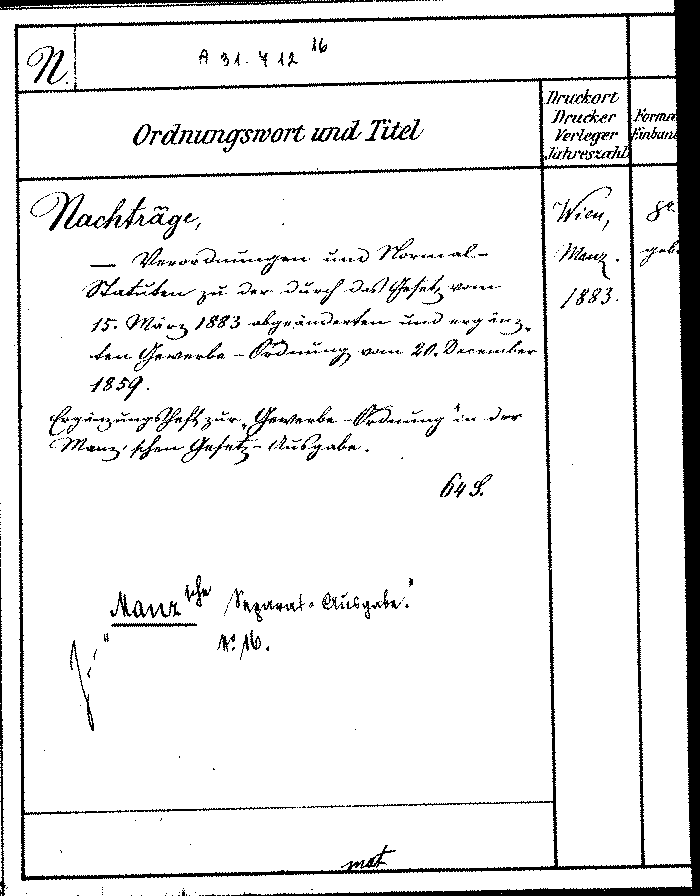 N.
A 31.412 16
Ordnungswort und Titel
Druckort
Drucker
Verleger
Jahreszahl
Forma
Einban
Nachträge,
— Verordnungen und Normal-
Statuten zu der durch das Gesetz vom
15. März 1883 abgeänderten und ergänz-
ten Gewerbe-Ordnung vom 20. December
1859.
Ergänzungsheft zur „Gewerbe-Ordnung" in der
Manz'schen Gesetz-Ausgabe.
64 S.
Wien,
Manz.
1883.
8°.
geb.
"Manz'sche Separat-Ausgabe."
No. 16.
mat